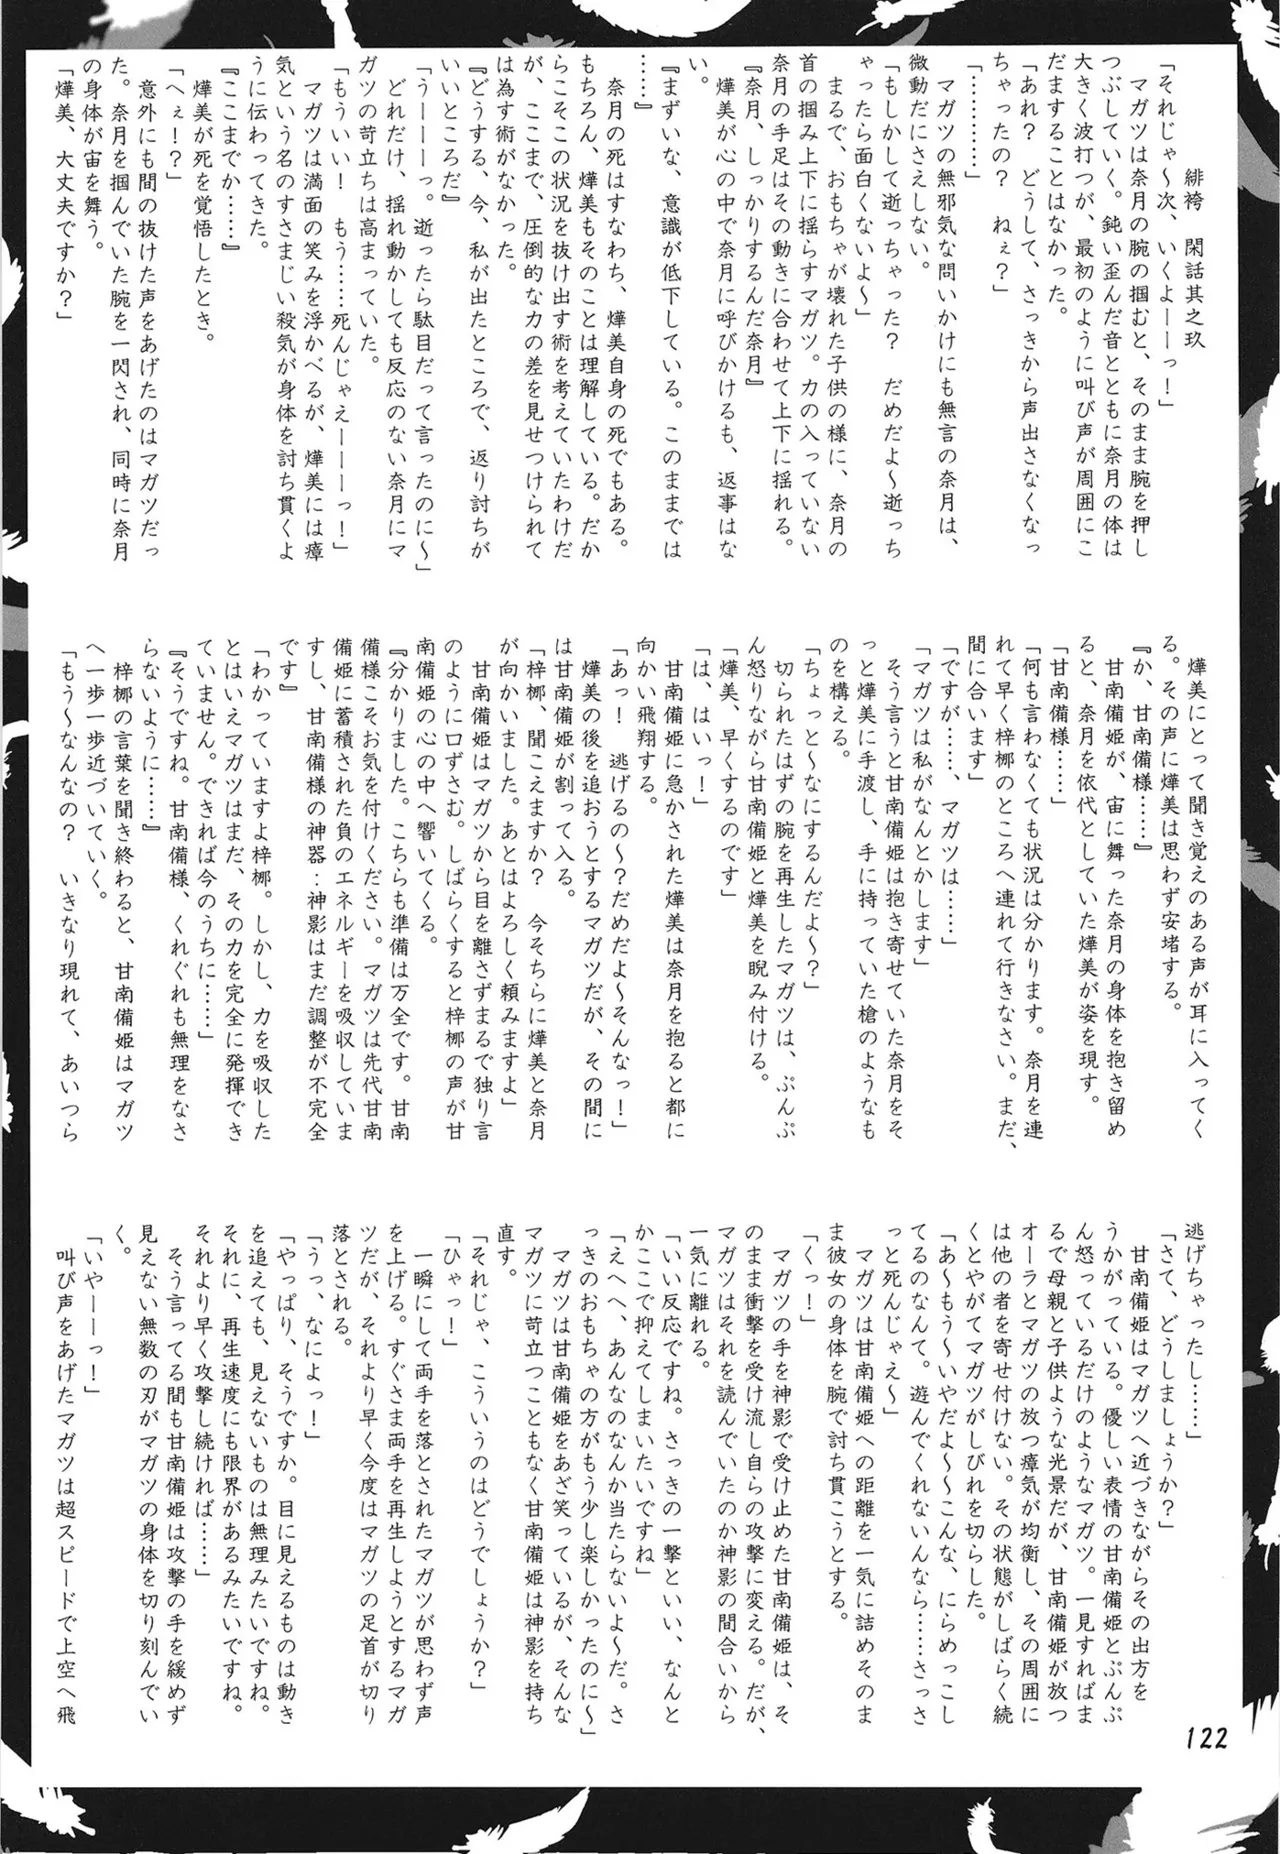 緋袴　閑話其之玖
「それじゃ～次、いくよーーっ！」
　マガツは奈月の腕の掴むと、そのまま腕を押し
つぶしていく。鈍い歪んだ音とともに奈月の体は
大きく波打つが、最初のように叫び声が周囲にこ
だますることはなかった。
「あれ？　どうして、さっきから声出さなくなっ
ちゃったの？　ねぇ？」
「…………」
　マガツの無邪気な問いかけにも無言の奈月は、
微動だにさえしない。
「もしかして逝っちゃった？　だめだよ～逝っち
ゃったら面白くないよ～」
　まるで、おもちゃが壊れた子供の様に、奈月の
首の掴み上下に揺らすマガツ。力の入っていない
奈月の手足はその動きに合わせて上下に揺れる。
『奈月、しっかりするんだ奈月』
　燁美が心の中で奈月に呼びかけるも、返事はな
い。
『まずいな、意識が低下している。このままでは
……』
　奈月の死はすなわち、燁美自身の死でもある。
もちろん、燁美もそのことは理解している。だか
らこそこの状況を抜け出す術を考えていたわけだ
が、ここまで、圧倒的な力の差を見せつけられて
は為す術がなかった。
『どうする、今、私が出たところで、返り討ちが
いいところだ』
「うーーーっ。逝ったら駄目だって言ったのに～」
　どれだけ、揺れ動かしても反応のない奈月にマ
ガツの苛立ちは高まっていた。
「もういい！　もう……死んじゃえーーーっ！」
　マガツは満面の笑みを浮かべるが、燁美には瘴
気という名のすさまじい殺気が身体を討ち貫くよ
うに伝わってきた。
『ここまでか……』
　燁美が死を覚悟したとき。
「へぇ！？」
　意外にも間の抜けた声をあげたのはマガツだっ
た。奈月を掴んでいた腕を一閃され、同時に奈月
の身体が宙を舞う。
「燁美、大丈夫ですか？」
　燁美にとって聞き覚えのある声が耳に入ってく
る。その声に燁美は思わず安堵する。
『か、甘南備様……』
　甘南備姫が、宙に舞った奈月の身体を抱き留め
ると、奈月を依代としていた燁美が姿を現す。
「甘南備様……」
「何も言わなくても状況は分かります。奈月を連
れて早く梓梛のところへ連れて行きなさい。まだ、
間に合います」
「ですが……、マガツは……」
「マガツは私がなんとかします」
　そう言うと甘南備姫は抱き寄せていた奈月をそ
っと燁美に手渡し、手に持っていた槍のようなも
のを構える。
「ちょっと～なにするんだよ～？」
　切られたはずの腕を再生したマガツは、ぷんぷ
ん怒りながら甘南備姫と燁美を睨み付ける。
「燁美、早くするのです」
「は、はいっ！」
　甘南備姫に急かされた燁美は奈月を抱ると都に
向かい飛翔する。
「あっ！　逃げるの～？だめだよ～そんなっ！」
　燁美の後を追おうとするマガツだが、その間に
は甘南備姫が割って入る。
「梓梛、聞こえますか？　今そちらに燁美と奈月
が向かいました。あとはよろしく頼みますよ」
　甘南備姫はマガツから目を離さずまるで独り言
のように口ずさむ。しばらくすると梓梛の声が甘
南備姫の心の中へ響いてくる。
『分かりました。こちらも準備は万全です。甘南
備様こそお気を付けください。マガツは先代甘南
備姫に蓄積された負のエネルギーを吸収していま
すし、甘南備様の神器：神影はまだ調整が不完全
です』
「わかっていますよ梓梛。しかし、力を吸収した
とはいえマガツはまだ、その力を完全に発揮でき
ていません。できれば今のうちに……」
『そうですね。甘南備様、くれぐれも無理をなさ
らないように……』
　梓梛の言葉を聞き終わると、甘南備姫はマガツ
へ一歩一歩近づいていく。
「もう～なんなの？　いきなり現れて、あいつら
逃げちゃったし……」
「さて、どうしましょうか？」
　甘南備姫はマガツへ近づきながらその出方を
うかがっている。優しい表情の甘南備姫とぷんぷ
ん怒っているだけのようなマガツ。一見すればま
るで母親と子供ような光景だが、甘南備姫が放つ
オーラとマガツの放つ瘴気が均衡し、その周囲に
は他の者を寄せ付けない。その状態がしばらく続
くとやがてマガツがしびれを切らした。
「あ～もう～いやだよ～～こんな、にらめっこし
てるのなんて。遊んでくれないんなら……さっさ
っと死んじゃえ～」
　マガツは甘南備姫への距離を一気に詰めそのま
ま彼女の身体を腕で討ち貫こうとする。
「くっ！」
　マガツの手を神影で受け止めた甘南備姫は、そ
のまま衝撃を受け流し自らの攻撃に変える。だが、
マガツはそれを読んでいたのか神影の間合いから
一気に離れる。
「いい反応ですね。さっきの一撃といい、なんと
かここで抑えてしまいたいですね」
「えへへ、あんなのなんか当たらないよ～だ。さ
っきのおもちゃの方がもう少し楽しかったのに～」
　マガツは甘南備姫をあざ笑っているが、そんな
マガツに苛立つこともなく甘南備姫は神影を持ち
直す。
「それじゃ、こういうのはどうでしょうか？」
「ひゃっ！」
　一瞬にして両手を落とされたマガツが思わず声
を上げる。すぐさま両手を再生しようとするマガ
ツだが、それより早く今度はマガツの足首が切り
落とされる。
「うっ、なによっ！」
「やっぱり、そうですか。目に見えるものは動き
を追えても、見えないものは無理みたいですね。
それに、再生速度にも限界があるみたいですね。
それより早く攻撃し続ければ……」
　そう言ってる間も甘南備姫は攻撃の手を緩めず
見えない無数の刃がマガツの身体を切り刻んでい
く。
「いやーーっ！」
　叫び声をあげたマガツは超スピードで上空へ飛
122